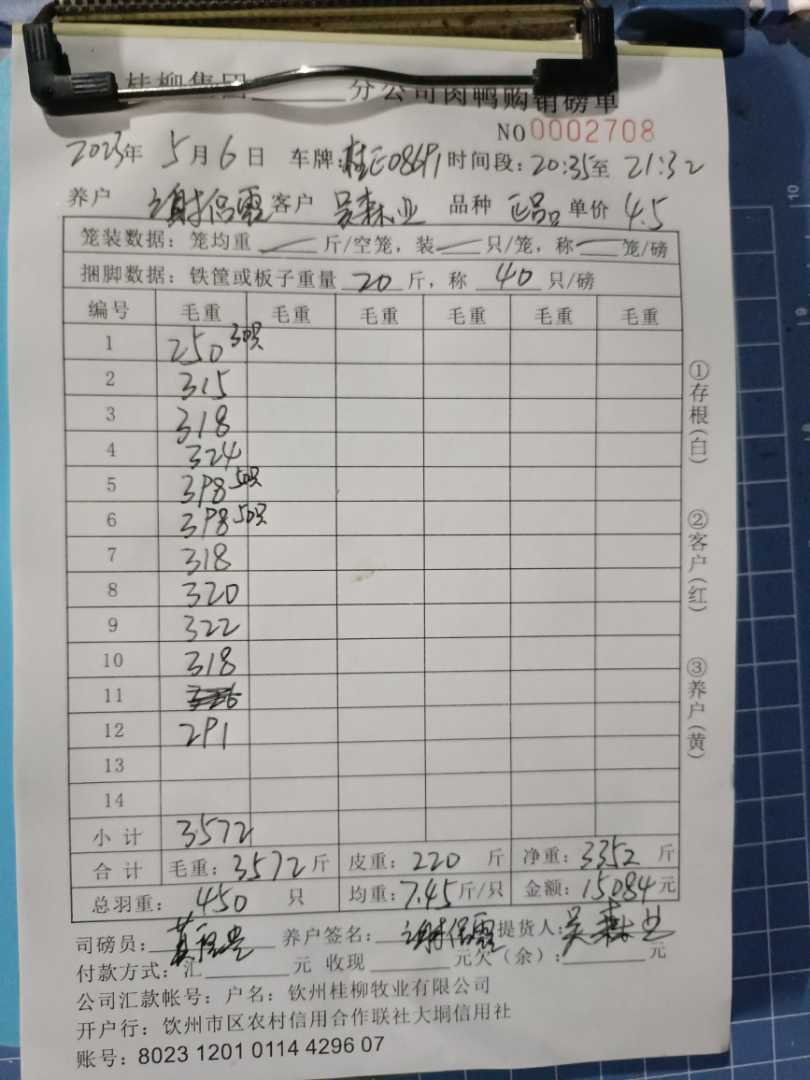 桂柳集团______分公司肉鸭购销磅单
NO 0002708
2023年 5月6日 车牌:桂E08691 时间段:20:35至 21:32
养户 谢保霞 客户 吴森业 品种 正品 单价 4.5
笼装数据: 笼均重 — 斤/空笼, 装 — 只/笼, 称 — 笼/磅
捆脚数据: 铁筐或板子重量 20 斤, 称 40 只/磅
编号 毛重 毛重 毛重 毛重 毛重 毛重
1 250 30只
2 315
3 318
4 324
5 398 50只
6 398 50只
7 318
8 320
9 322
10 318
11
12 291
13
14
小计 3572
合计 毛重: 3572斤 皮重: 220 斤 净重: 3352 斤
总羽重: 450 只 均重: 7.45斤/只 金额: 15084元
司磅员: 养户签名: 谢保霞 提货人: 吴森业
付款方式: 汇______元 收现______元欠(余):______元
公司汇款帐号: 户名: 钦州桂柳牧业有限公司
开户行: 饮州市区农村信用合作联社大垌信用社
账号: 8023 1201 0114 4296 07
①存根(白)
②客户(红)
③养户(黄)